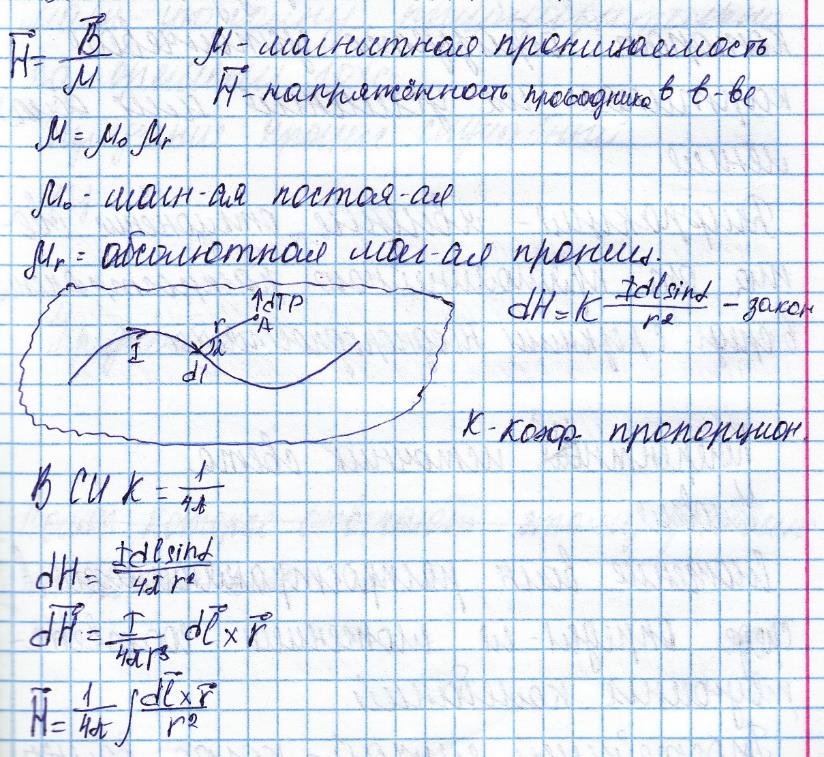 H⃗ = B⃗/μ   μ - магнитная проницаемость
H⃗ - напряжённость проводника в в-ве
μ = μ₀ μr
μ₀ - магн-ая постоя-ая
μr = абсолютная маг-ая прониц.
dH = K Idlsinα/r² - закон
I dl r A
K - коэф. пропорцион.
В СИ K = 1/4π
dH = Idlsinα/4πr²
dH⃗ = I/4πr³ dl⃗ × r⃗
H⃗ = 1/4π ∫ dl⃗ × r⃗/r²